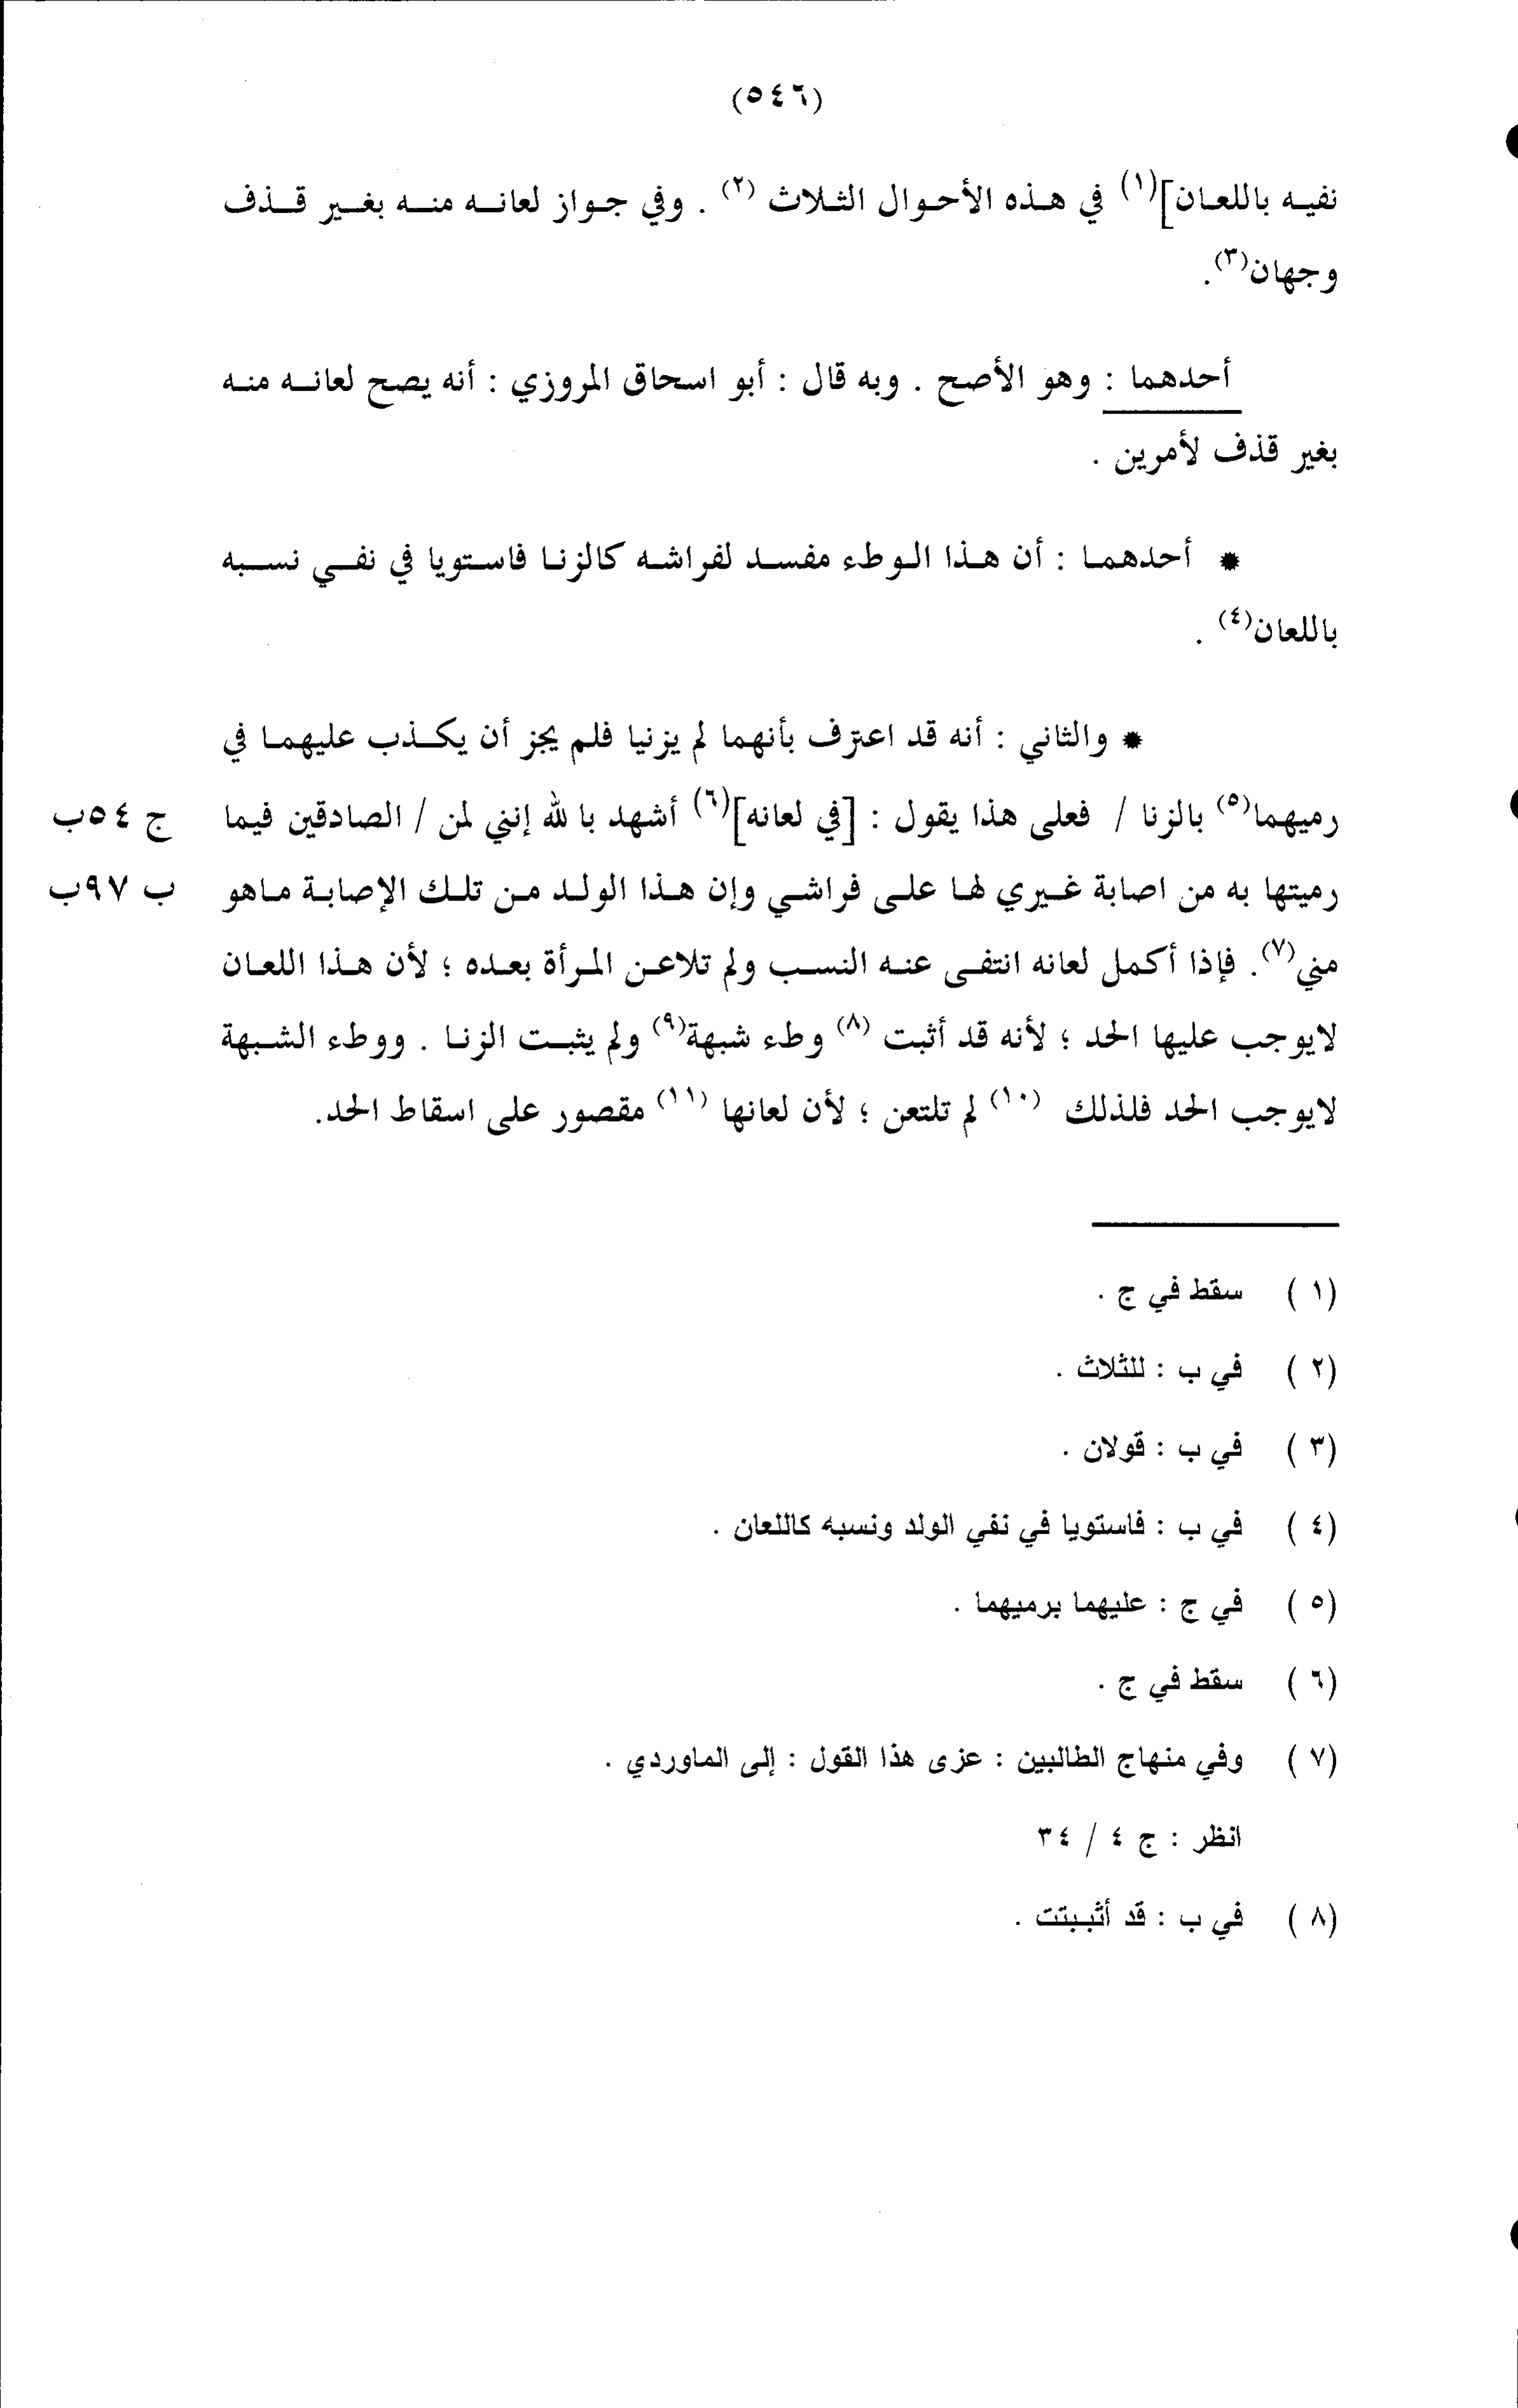 (٥٤٦)
نفيه باللعان](١) في هذه الأحوال الثلاث (٢) . وفي جواز لعانه منه بغير قذف
وجهان(٣).
أحدهما : وهو الأصح . وبه قال : أبو اسحاق المروزي : أنه يصح لعانه منه
بغير قذف لأمرين .
* أحدهما : أن هذا الوطء مفسد لفراشه كالزنا فاستويا في نفي نسبه
باللعان(٤) .
* والثاني : أنه قد اعترف بأنهما لم يزنيا فلم يجز أن يكذب عليهما في
رميهما(٥) بالزنا / فعلى هذا يقول : [في لعانه](٦) أشهد با لله إنني لمن / الصادقين فيما ج ٥٤ب
رميتها به من اصابة غيري لها على فراشي وإن هذا الولد من تلك الإصابة ماهو ب ٩٧ب
مني(٧). فإذا أكمل لعانه انتفى عنه النسب ولم تلاعن المرأة بعده ؛ لأن هذا اللعان
لايوجب عليها الحد ؛ لأنه قد أثبت (٨) وطء شبهة(٩) ولم يثبت الزنا . ووطء الشبهة
لايوجب الحد فلذلك (١٠) لم تلتعن ؛ لأن لعانها (١١) مقصور على اسقاط الحد.
(١) سقط في ج .
(٢) في ب : للثلاث .
(٣) في ب : قولان .
(٤) في ب : فاستويا في نفي الولد ونسبه كاللعان .
(٥) في ج : عليهما برميهما .
(٦) سقط في ج .
(٧) وفي منهاج الطالبين : عزى هذا القول : إلى الماوردي .
انظر : ج ٤ / ٣٤
(٨) في ب : قد أثببتت .